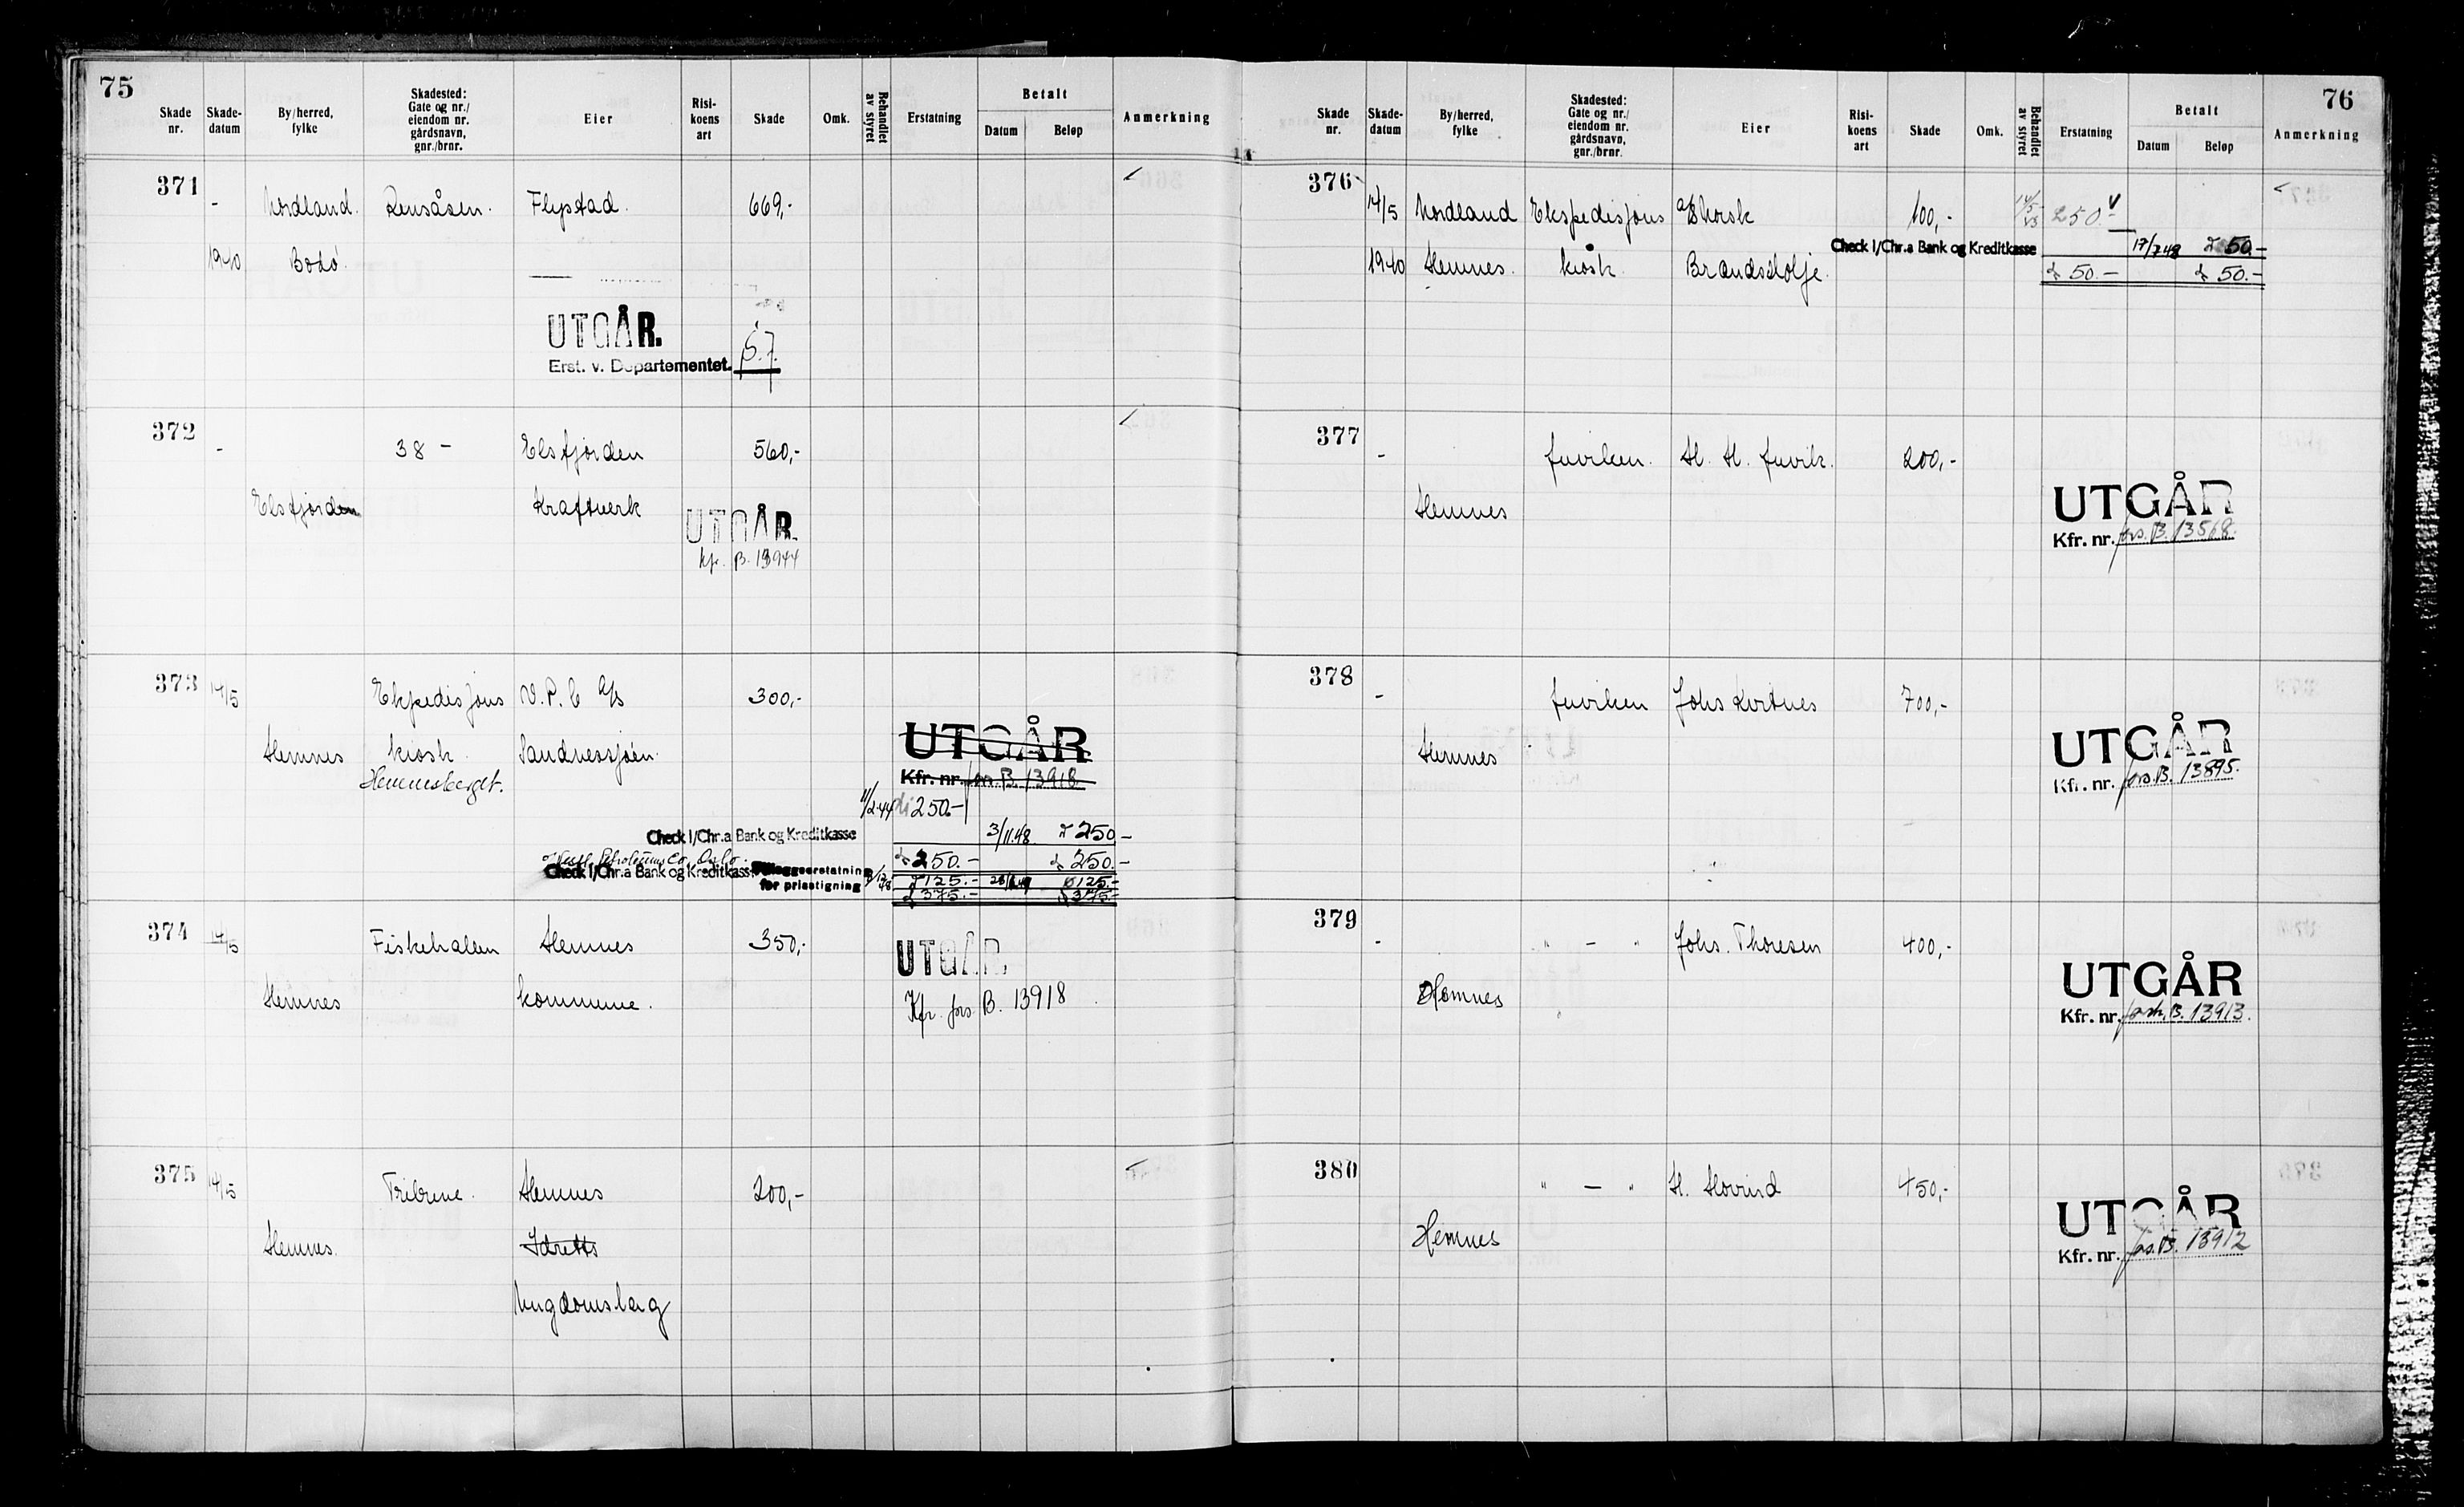 75
Skade nr. Skade-datum By/herred, fylke Skadested: Gate og nr./ eiendom nr. gårdsnavn, gnr./brnr. Eier Risi-koens art Skade Omk. Behandlet av styret Erstatning Betalt Datum Beløp Anmerkning
371 - Nordland. Rensåsen. Flystad. 669,-
1940 Bodø.
UTGÅR.
Erst. v. Departementet.
372 - 38 - Elsfjorden 560,-
Elsfjorden Kraftverk
UTGÅR.
kfr. B. 13944
373 14/5 Ekpedisjons V.P.C A/S 300,-
Hemnes kiosk. Sandnessjøen.
Hemnesberget.
UTGÅR
Kfr. nr. fors. B. 13918
11/2-44 250.-
Check I/Chr.a Bank og Kreditkasse 3/11.48. 250.-
250.- 250.-
Vestl. Petroleums Co., Oslo.
Check I/Chr.a Bank og Kreditkasse Tilleggserstatning
for prisstigning 125.- 125.-
375.- 375.-
374 14/5 Fiskehallen Hemnes 350,-
Hemnes kommune.
UTGÅR.
Kfr. fors. B. 13918
375 14/5 Tribune. Hemnes 200,-
Hemnes. Idretts
Ungdomslag
76
Skade nr. Skade-datum By/herred, fylke Skadested: Gate og nr./ eiendom nr. gårdsnavn, gnr./brnr. Eier Risi-koens art Skade Omk. Behandlet av styret Erstatning Betalt Datum Beløp Anmerkning
376 14/5 Nordland Ekspedisjons A/S Norsk 100,- 250.-
Check I/Chr.a Bank og Kreditkasse 17/7.48 50.-
1940 Hemnes. kiosk. Brændselolje. 50.- 50.-
377 - Juviken. H. H. Juvik. 200,-
Hemnes
UTGÅR
Kfr. nr. fors. B. 13568.
378 - Juviken Johs Kvitnes 700,-
Hemnes
UTGÅR
Kfr. nr. fors. B. 13895.
379 - " - " Johs. Thoresen 400,-
Hemnes
UTGÅR
Kfr. nr. forsk. B. 13913.
380 " - " H. Hovind 450,-
Hemnes
UTGÅR
Kfr. nr. fors. B. 13912